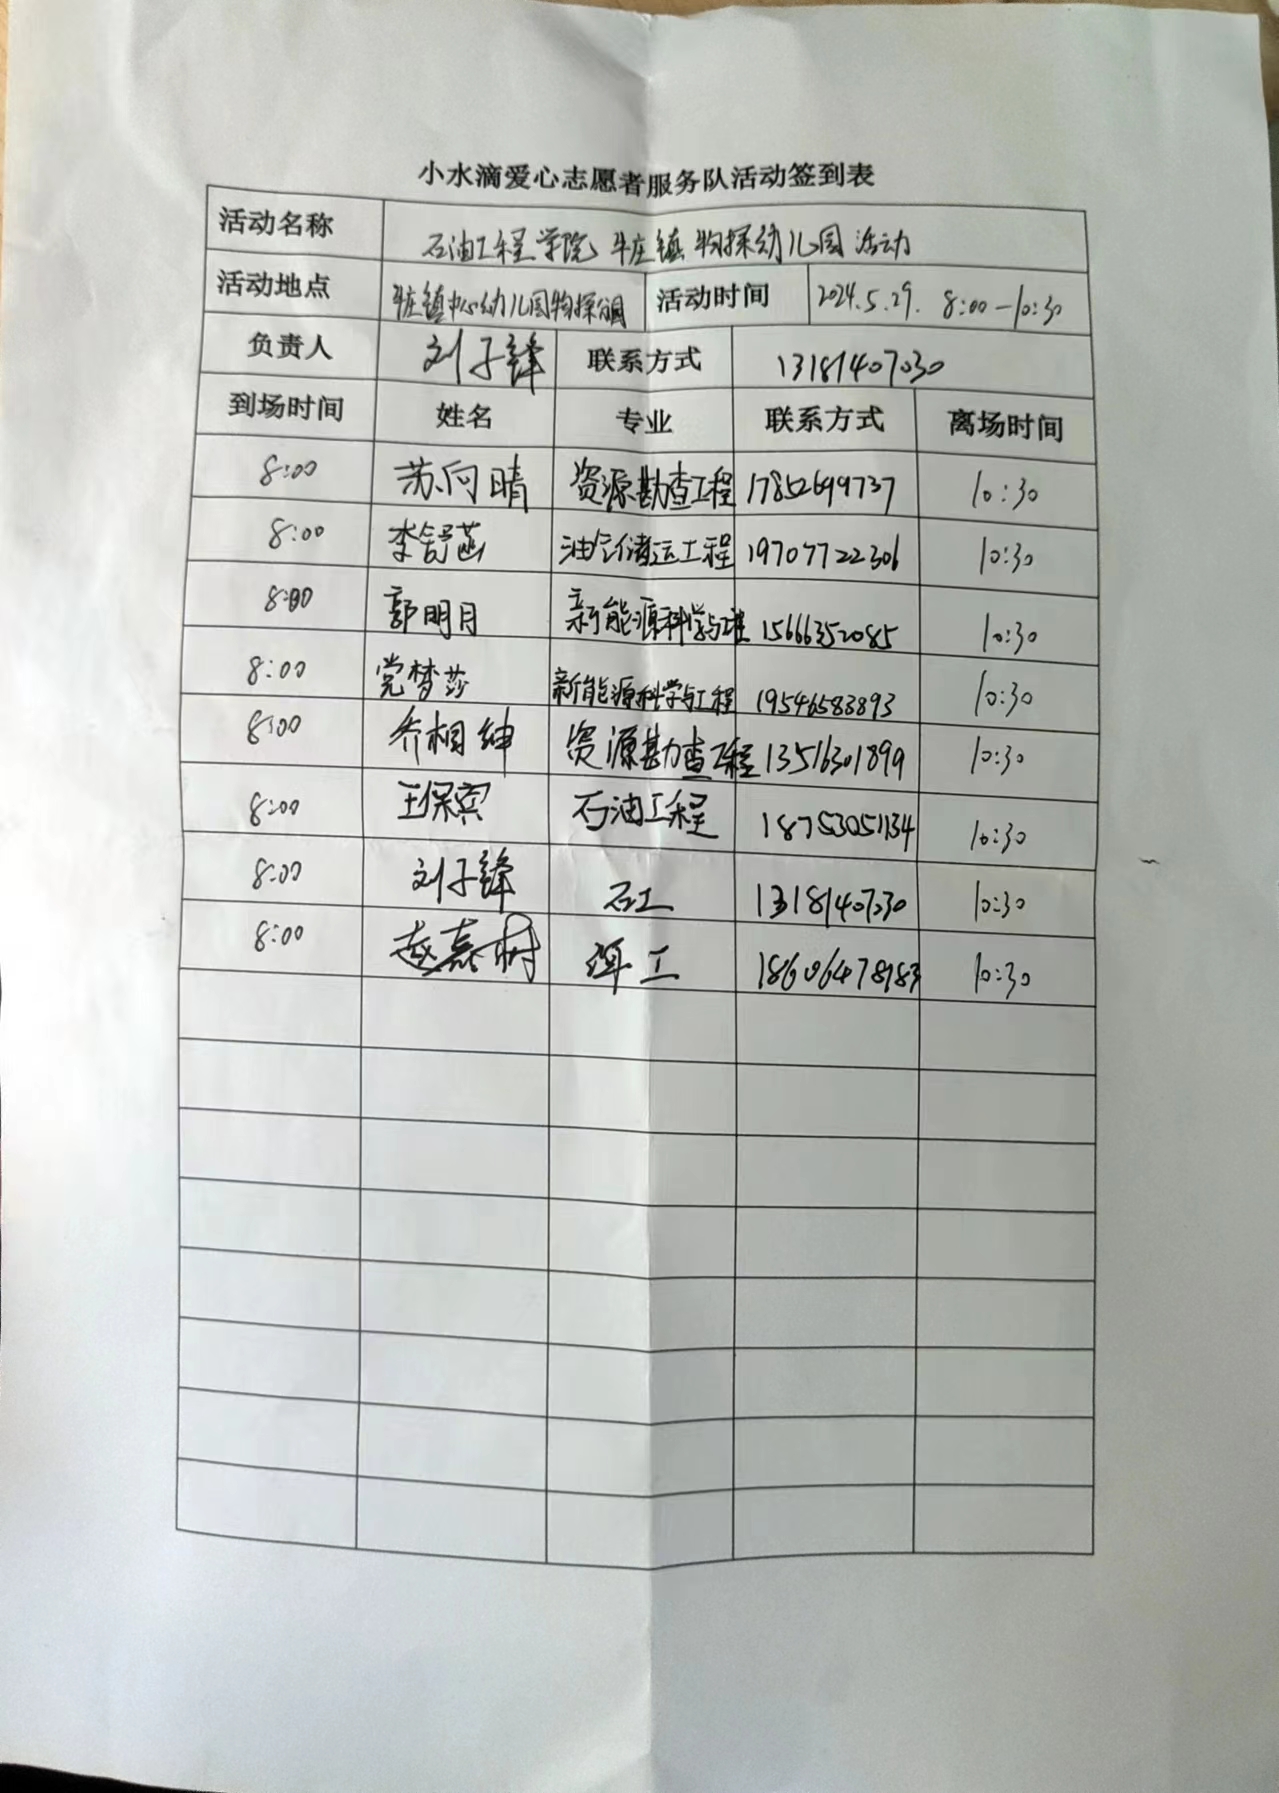 小水滴爱心志愿者服务队活动签到表
活动名称 石油工程学院 牛庄镇物探幼儿园活动
活动地点 牛庄镇中心幼儿园物探分园 活动时间 2024.5.29. 8:00—10:30
负责人 刘子锋 联系方式 13181407030
到场时间 姓名 专业 联系方式 离场时间
8:00 苏向晴 资源勘查工程 17852699737 10:30
8:00 李舒菡 油气储运工程 19707722306 10:30
8:00 郭明月 新能源科学与工程 15666352085 10:30
8:00 党梦莎 新能源科学与工程 19546583893 10:30
8:00 乔相绅 资源勘查工程 13516301899 10:30
8:00 王保宾 石油工程 18753051134 10:30
8:00 刘子锋 石工 13181407030 10:30
8:00 赵嘉树 工 10:30